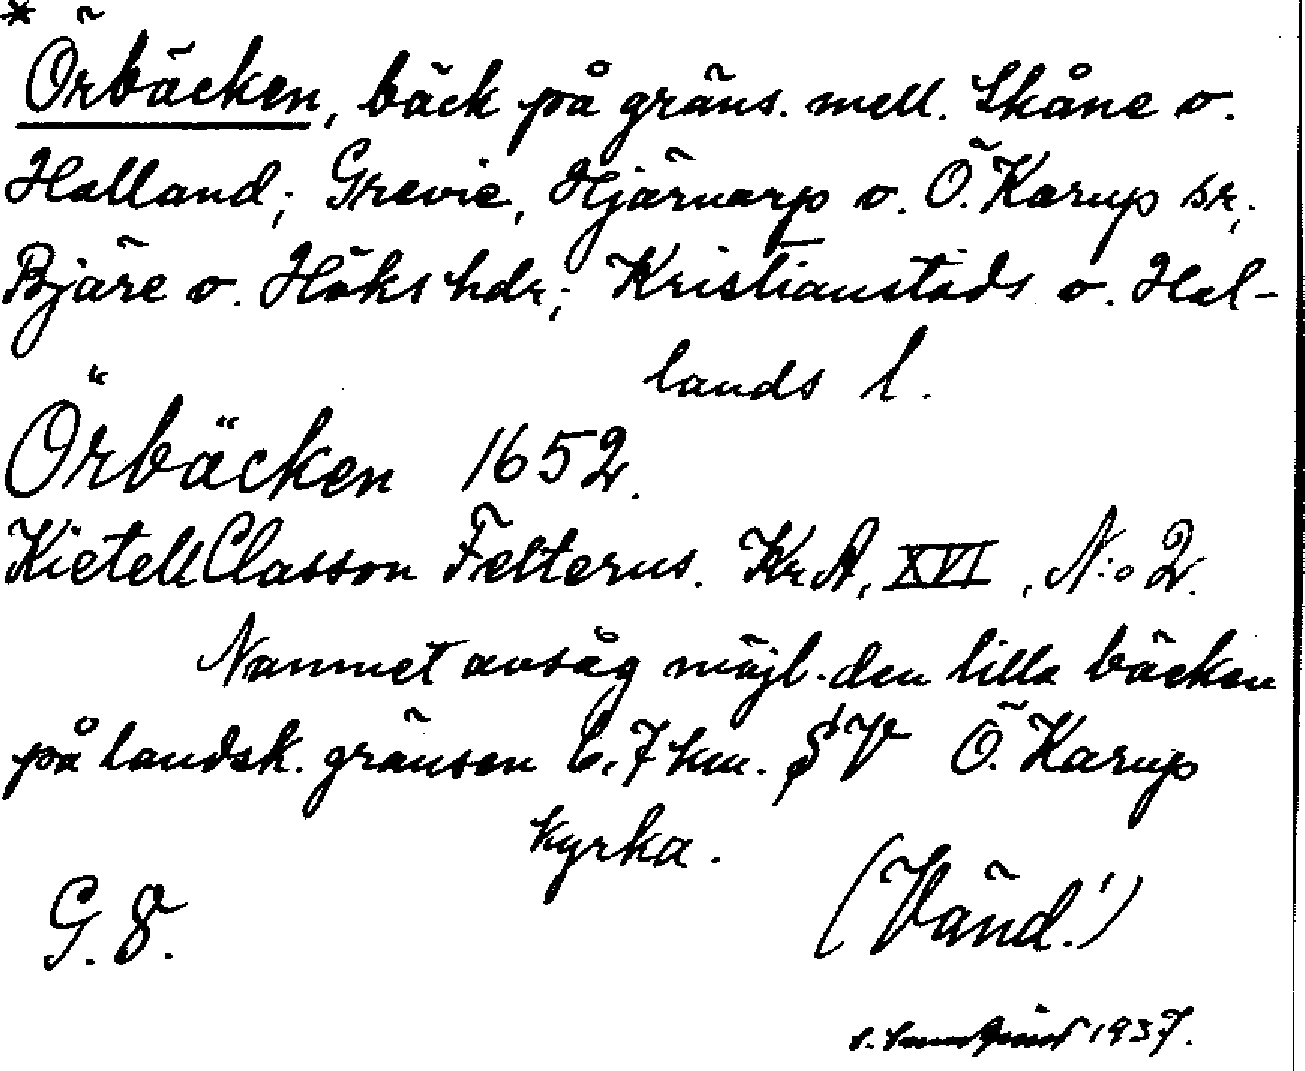 * Örbäcken, bäck på gräns. mell. Skåne o.
Halland; Grevie, Hjärnarp o. Ö. Karup sr,;
Bjäre o. Höks hdr,; Kristianstads o. Hal-
lands l.
Örbäcken 1652.
Kietell Classon Felterus. Kr.A, XVI, N:o 2.
Namnet avsåg möjl. den lilla bäcken
på landsk. gränsen 6,7 km. SV Ö. Karup
kyrka.
G. F. (Vänd!)
1937.